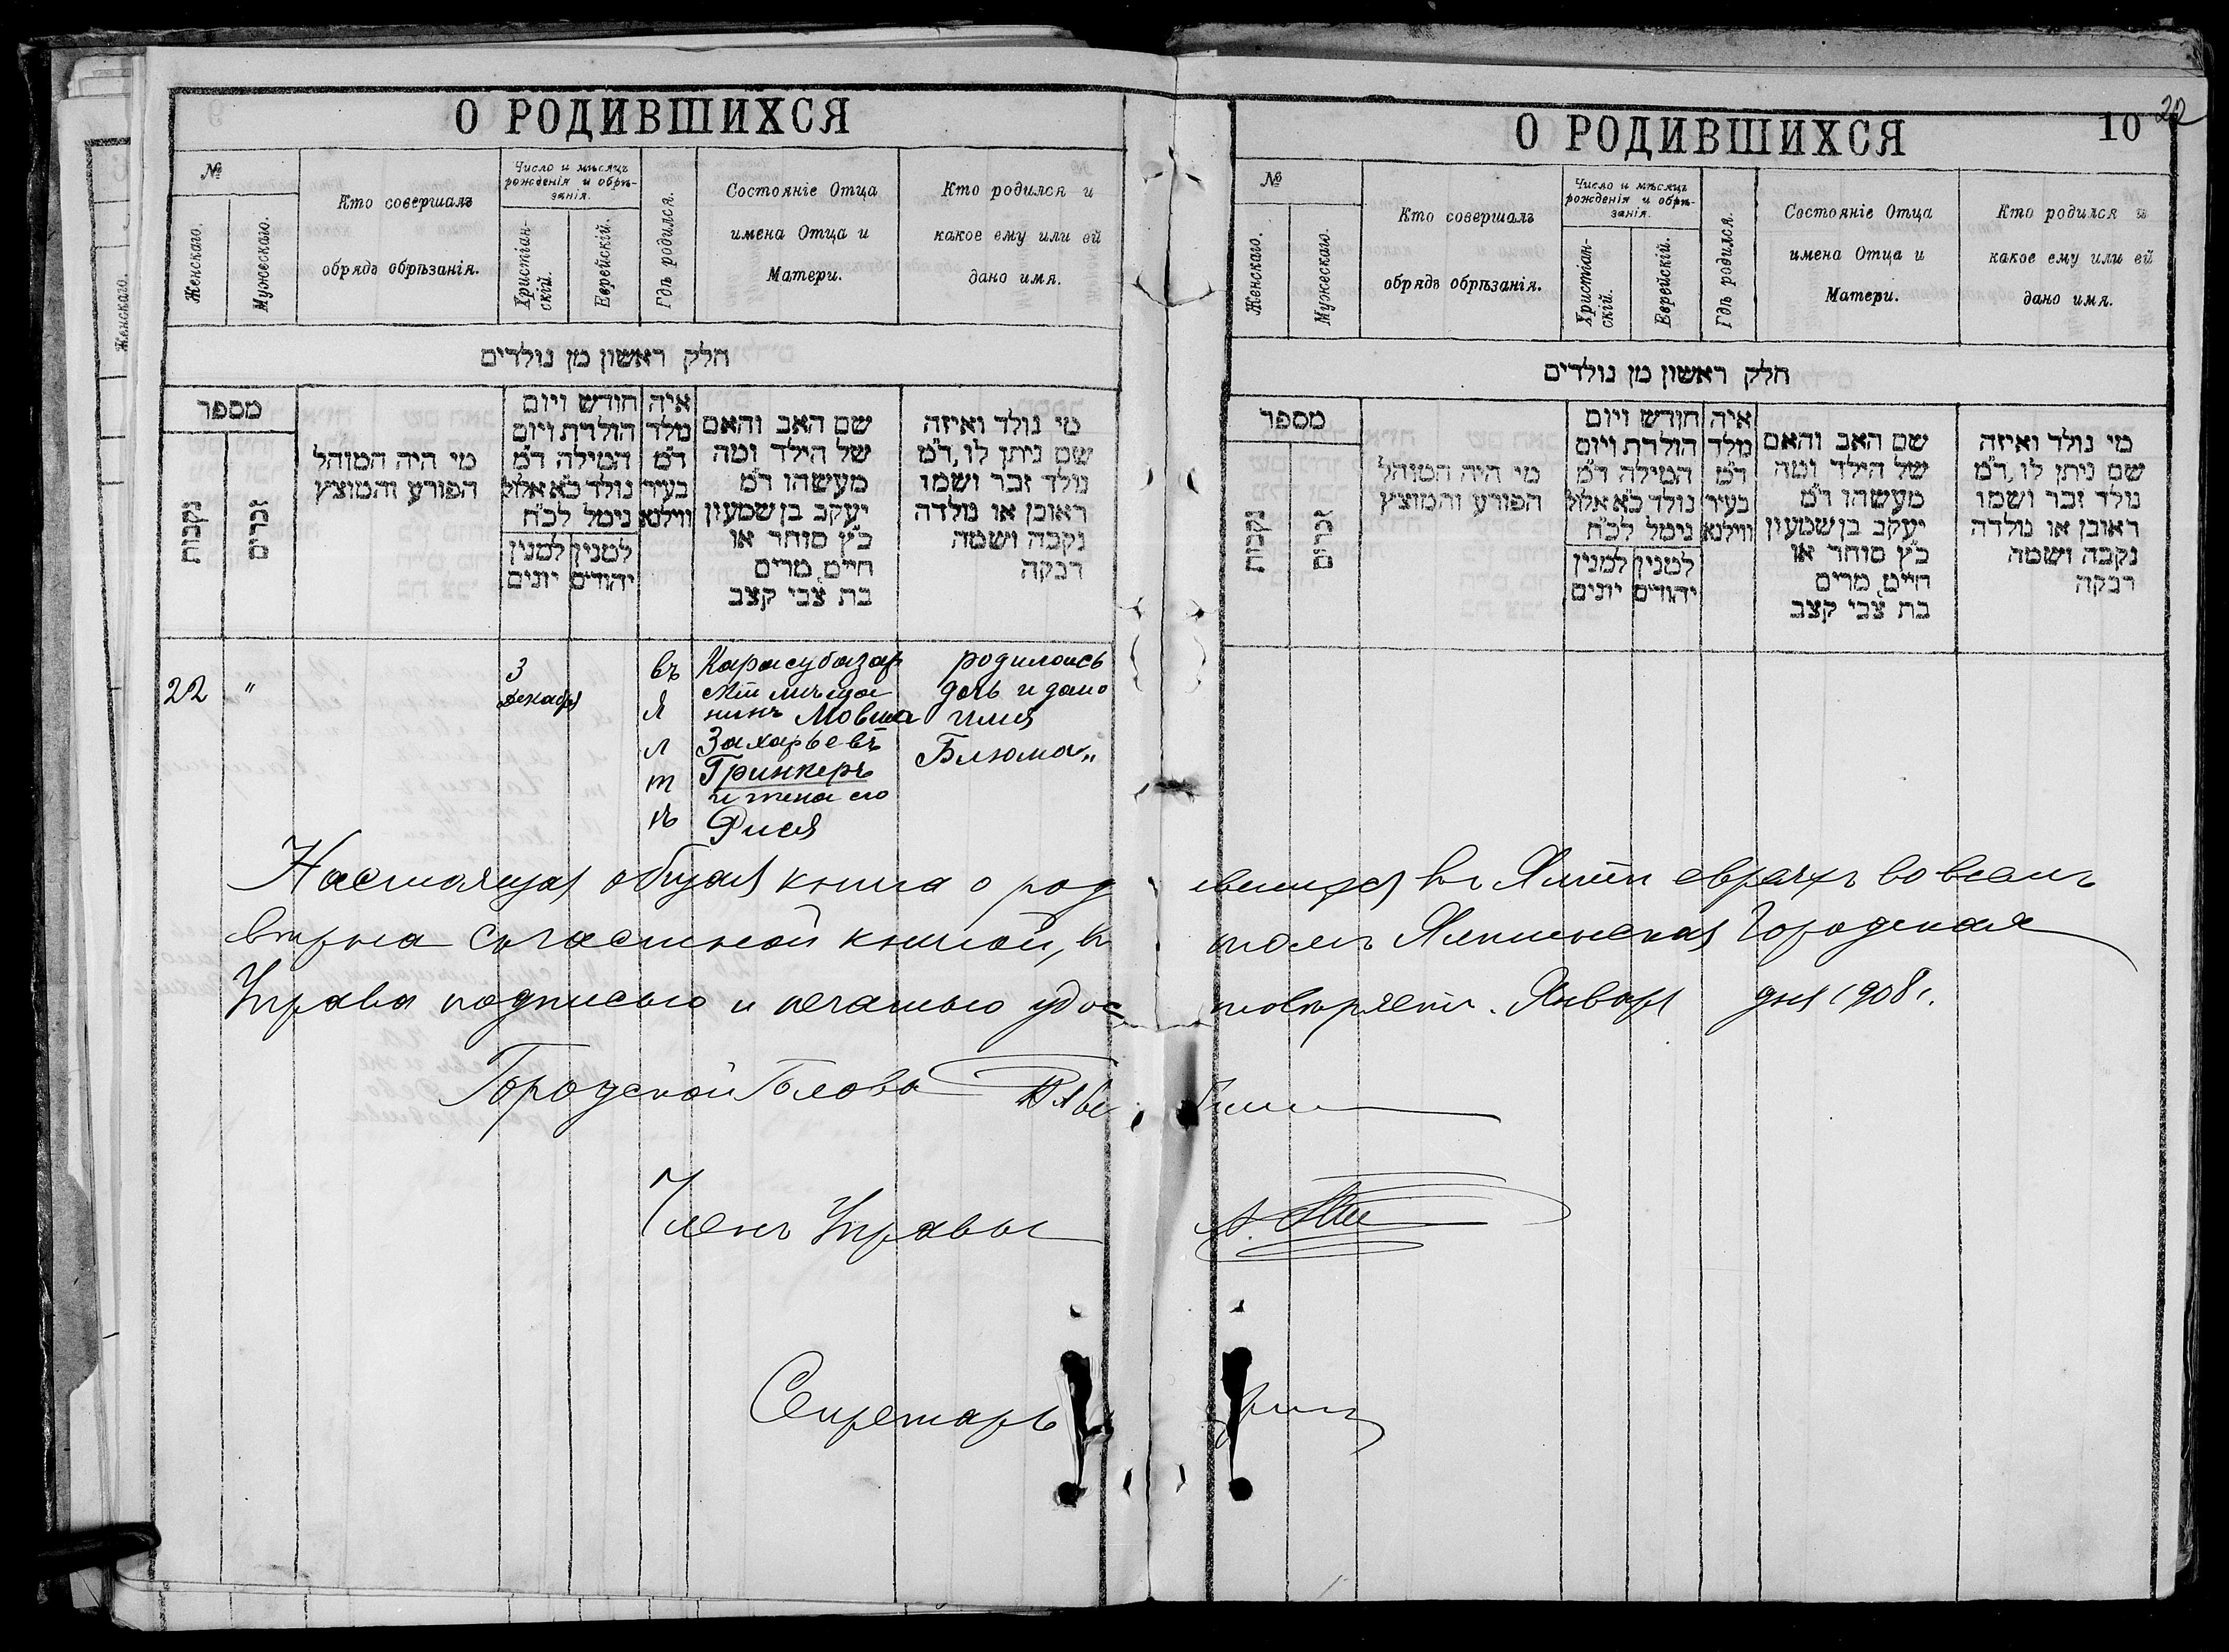 О РОДИВШИХСЯ
№
Женскаго.
Мужескаго.
Кто совершалъ
обрядъ обрѣзанія.
Число и мѣсяцъ
рожденія и обрѣ-
занія.
Христіан-
скій.
Еврейскій.
Гдѣ родился.
Состояніе Отца
имена Отца и
Матери.
Кто родился и
какое ему или ей
дано имя.
חלק ראשון מן נולדים
מספר
נקבות
זכרים
מי היה המוהל
הפורע והמוצץ
חודש ויום
הולדת ויום
המילה ד״מ
נולד כ״א אלול
נימל לכ״ח
למנין יונים
למנין יהודים
איה
מלד
ד״מ
בעיר
ווילנא
שם האב והאם
של הילד ומה
מעשהו ד״מ
יעקב בן שמעון
כ״ץ סוחר או
חייט, מרים
בת צבי קצב
מי נולד ואיזה
שם ניתן לו, ד״מ
נולד זכר ושמו
ראובן או נולדה
נקבה ושמה
רבקה
22
"
3
декабря
въ
Я
л
т
ѣ
Карасубазар
скій мѣща
нинъ Мовша
Захарьевъ
Гринкеръ
и жена его
Рися
родилась
дочь и дано
имя
Блюма„
О РОДИВШИХСЯ
10
№
Женскаго.
Мужескаго.
Кто совершалъ
обрядъ обрѣзанія.
Число и мѣсяцъ
рожденія и обрѣ-
занія.
Христіан-
скій.
Еврейскій.
Гдѣ родился.
Состояніе Отца
имена Отца и
Матери.
Кто родился и
какое ему или ей
дано имя.
חלק ראשון מן נולדים
מספר
נקבות
זכרים
מי היה המוהל
הפורע והמוצץ
חודש ויום
הולדת ויום
המילה ד״מ
נולד כ״א אלול
נימל לכ״ח
למנין יונים
למנין יהודים
איה
מלד
ד״מ
בעיר
ווילנא
שם האב והאם
של הילד ומה
מעשהו ד״מ
יעקב בן שמעון
כ״ץ סוחר או
חייט, מרים
בת צבי קצב
מי נולד ואיזה
שם ניתן לו, ד״מ
נולד זכר ושמו
ראובן או נולדה
נקבה ושמה
רבקה
Настоящая общая книга о родившихся въ Ялтѣ евреяхъ во всемъ
вѣрна съ частной книгой, въ томъ Ялтинская Городская
Управа подписью и печатью удостовѣряетъ. Января дня 1908 г.
Городской Голова
Членъ Управы
Секретарь